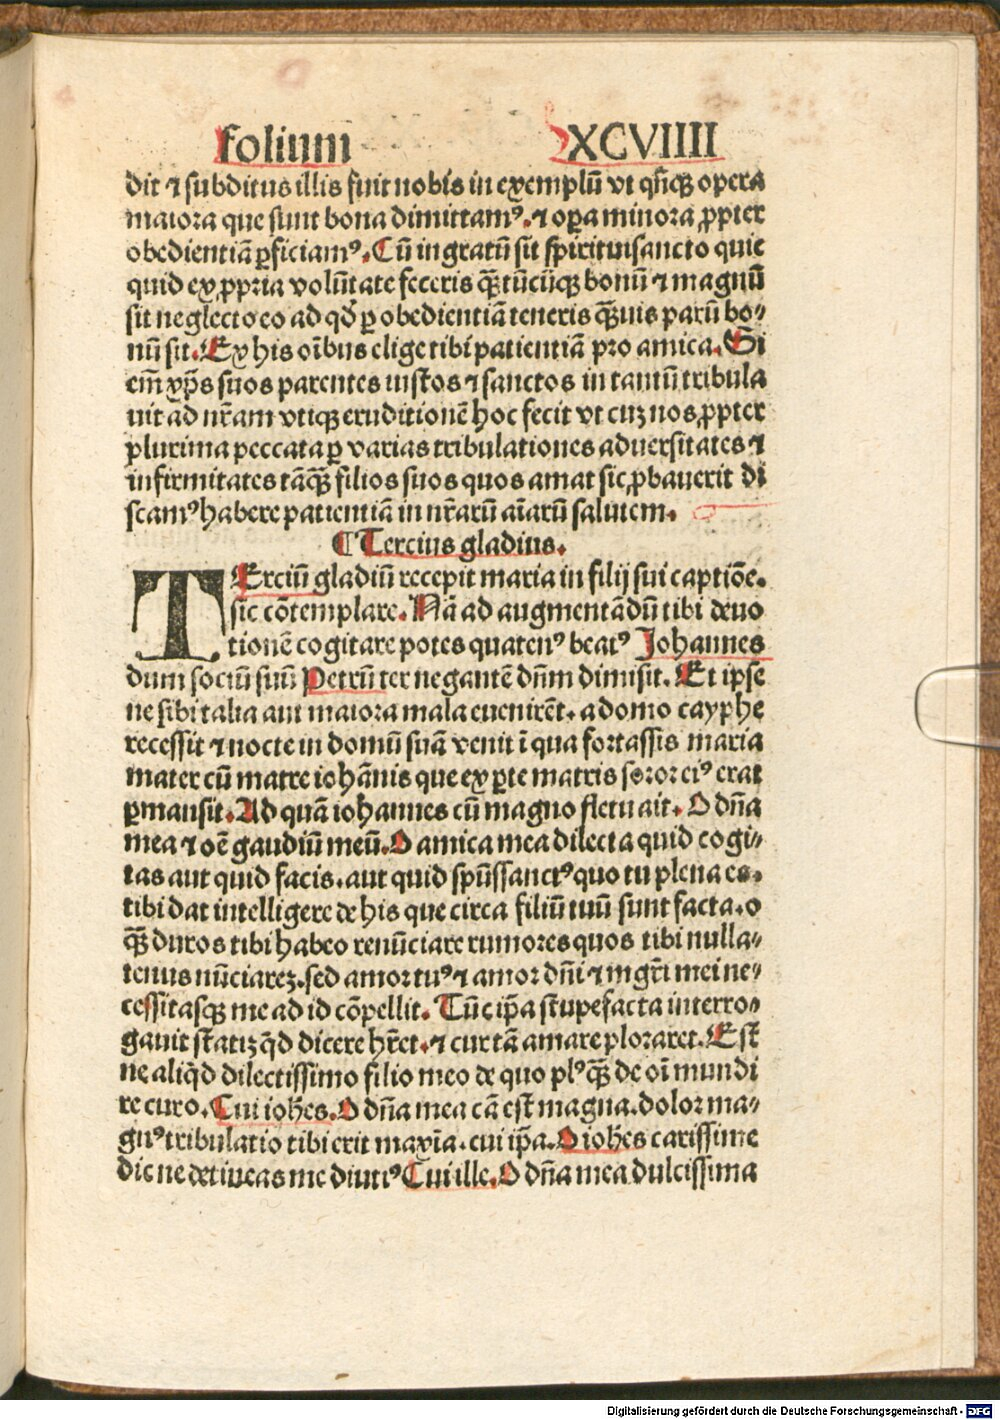 folium XCVIIII
dit ⁊ subditus illis fuit nobis in exemplū vt qn̄cqꝫ opera
maiora que sunt bona dimittamꝰ. ⁊ oꝑa minora ꝓpter
obedientiā ꝑficiamꝰ. Cū ingratū sit spirituisancto quic
quid ex ꝓpria volūtate feceris qͣꝫtūcūqꝫ bonū ⁊ magnū
sit neglecto eo ad qd̓ ꝑ obedientiā teneris qͣꝫuis parū bo⸗
nū sit. Ex his oībus elige tibi patientiā pro amica. Si
em̄ xp̄s suos parentes iustos ⁊ sanctos in tantū tribula
uit ad nr̄am vtiqꝫ eruditionē hoc fecit vt cuꝫ nos ꝓpter
plurima peccata ꝑ varias tribulationes aduersitates ⁊
infirmitates tāqͣꝫ filios suos quos amat sic ꝓbauerit di
scamꝰ habere patientiā in nr̄arū aīarū salutem.
⸿ Tercius gladius.
TErciū gladiū recepit maria in filij sui captiōe.
sic cōtemplare. Nā ad augmentādū tibi deuo
tionē cogitare potes quatenꝰ beatꝰ Johannes
dum sociū suū Petrū ter negantē dn̄m dimisit. Et ipse
ne sibi talia aut maiora mala euenirēt. a domo cayphe
recessit ⁊ nocte in domū suā venit ī qua fortassis maria
mater cū matre iohānis que ex ꝑte matris soror eiꝰ erat
ꝑmansit. Ad quā iohannes cū magno fletu ait. O dn̄a
mea ⁊ oē gaudiū meū. O amica mea dilecta quid cogi⸗
tas aut quid facis. aut quid spūssanctꝰ quo tu plena es.
tibi dat intelligere de his que circa filiū tuū sunt facta. o
qͣꝫ duros tibi habeo renūciare rumores quos tibi nulla⸗
tenus nūciareꝫ. sed amor tuꝰ ⁊ amor dn̄i ⁊ mgr̄i mei ne⸗
cessitasqꝫ me ad id cōpellit. Tūc ip̄a stupefacta interro⸗
gauit statiꝫ qd̄ dicere hr̄et. ⁊ cur tā amare ploraret. Est
ne aliqd̄ dilectissimo filio meo de quo plꝰ qͣꝫ de oī mundi
re curo. Cui ioh̄es. O dn̄a mea cā est magna. dolor ma⸗
gnꝰ tribulatio tibi erit maxīa. cui ip̄a. O ioh̄es carissime
dic ne detineas me diutiꝰ Cui ille. O dn̄a mea dulcissima
Digitalisierung gefördert durch die Deutsche Forschungsgemeinschaft - DFG